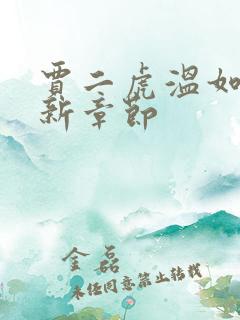 賈二虎溫如
新章節
金磊
未经同意禁止转载